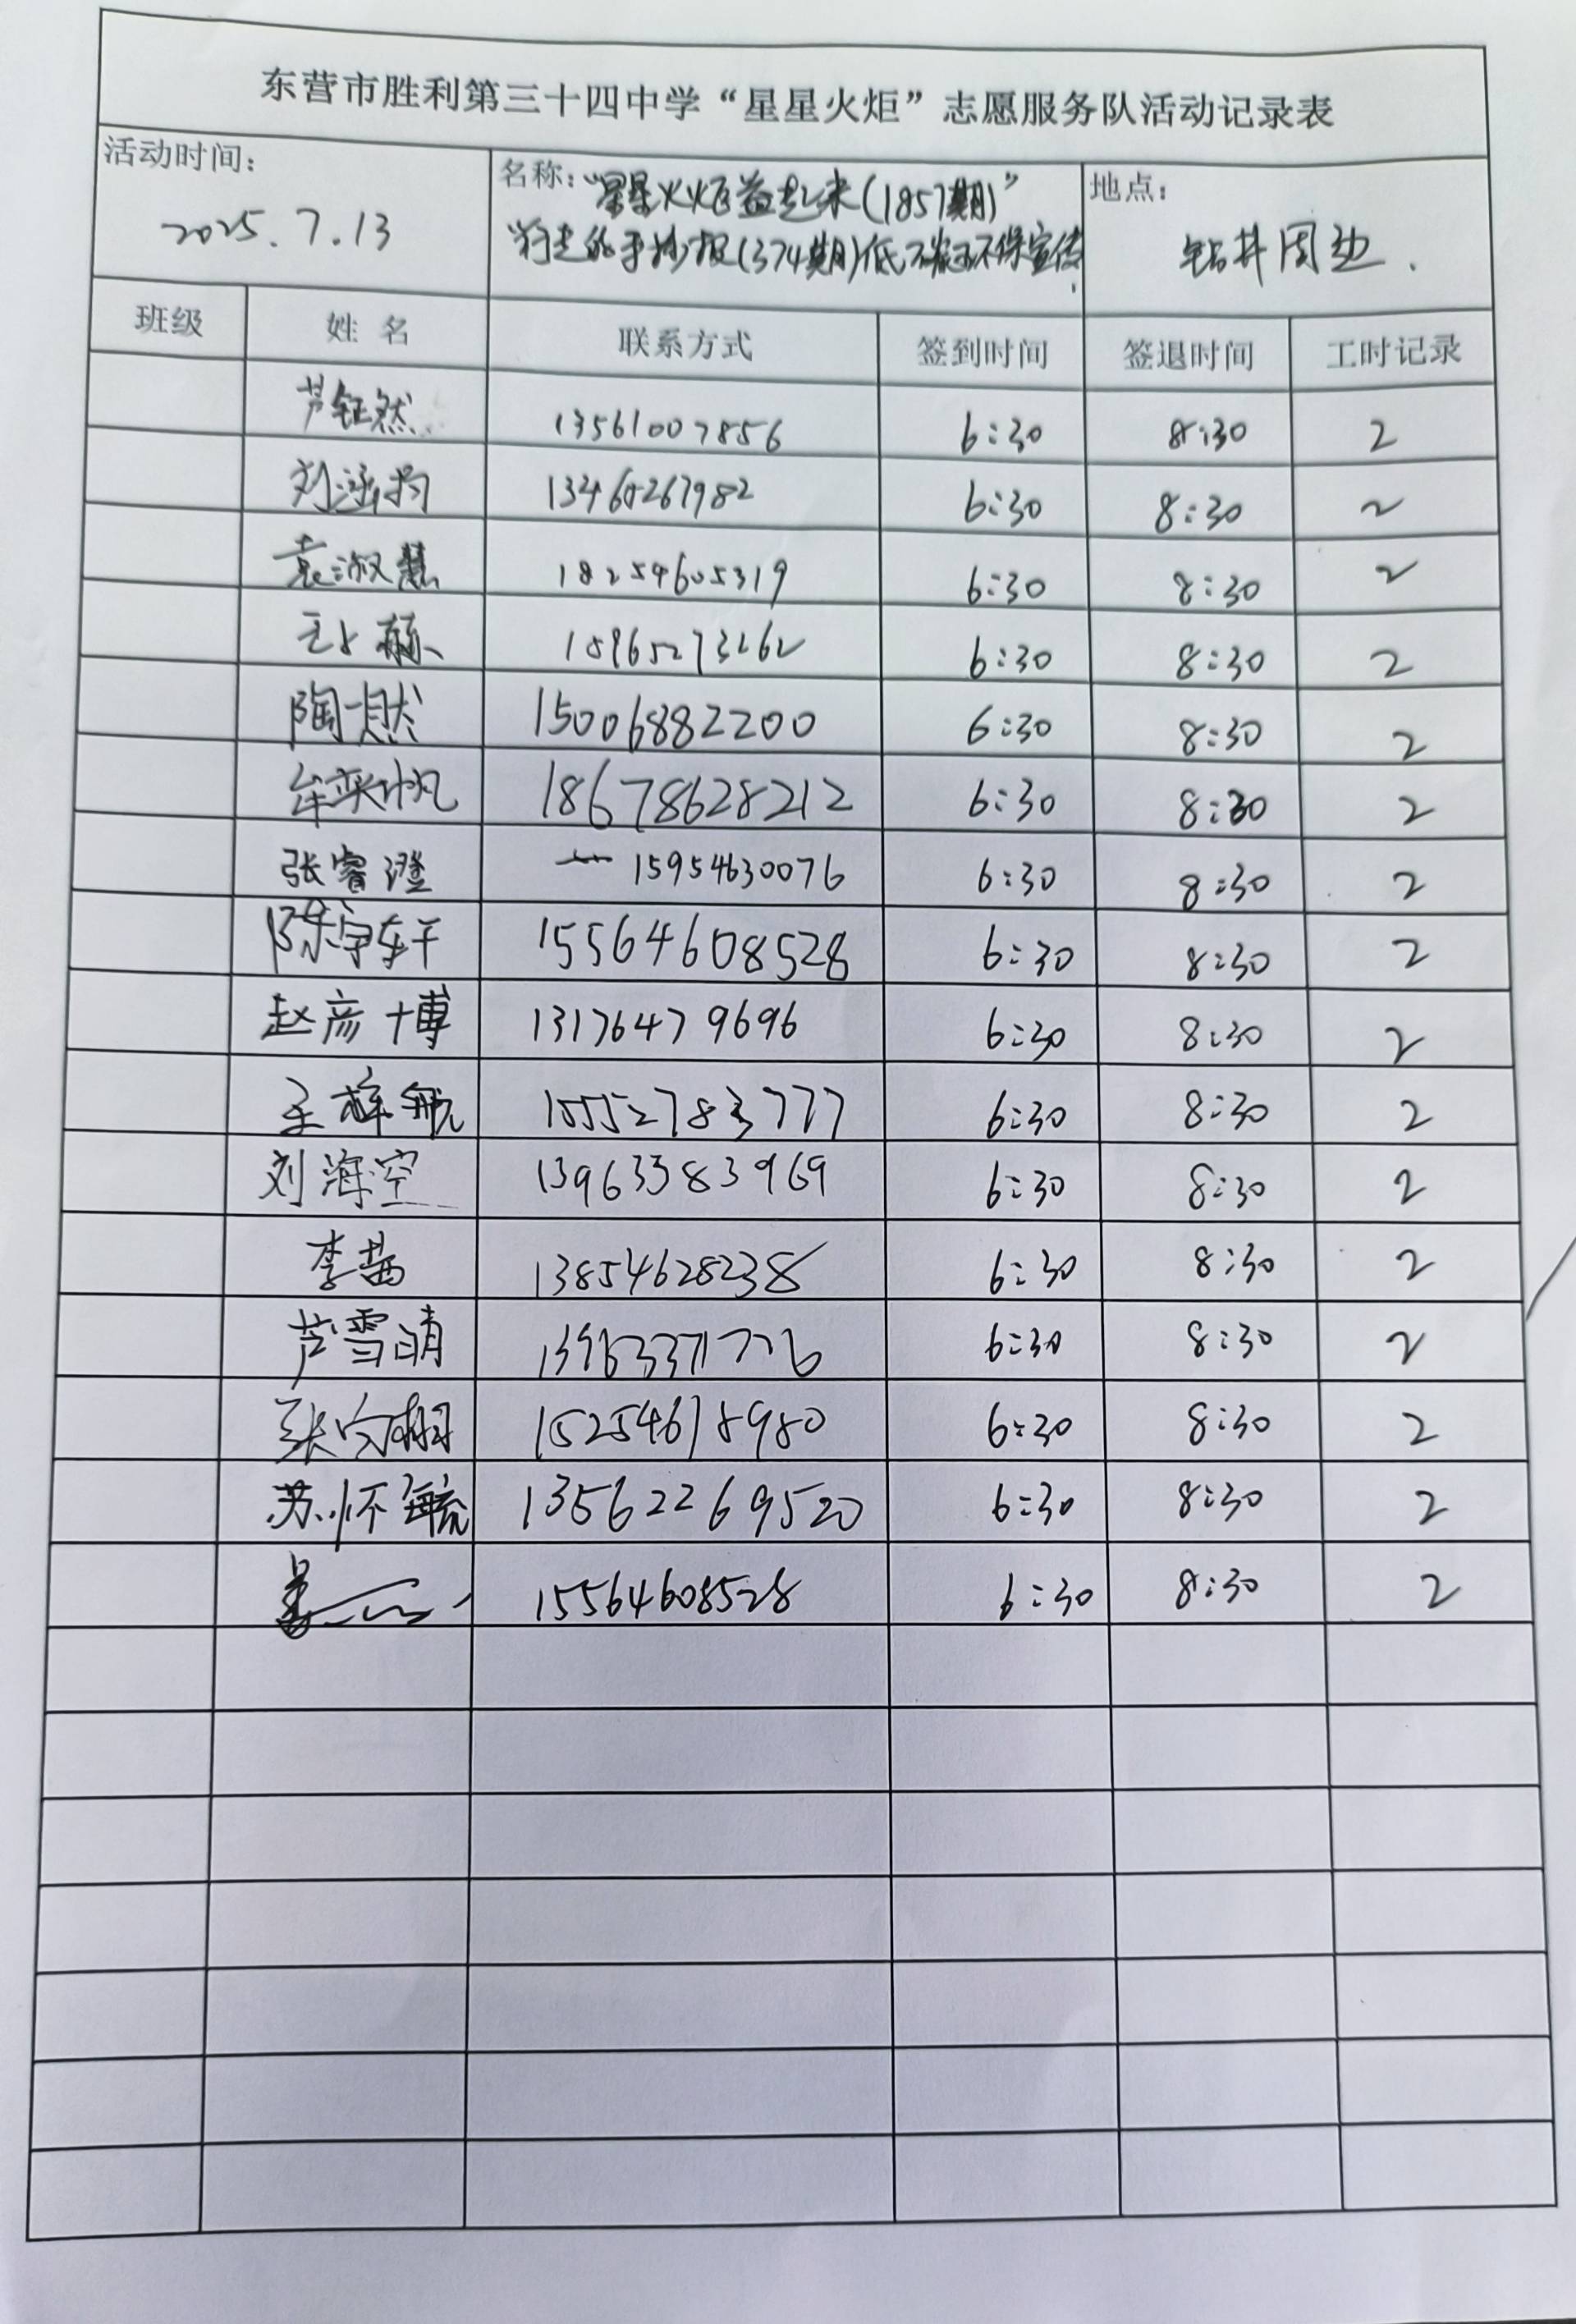 东营市胜利第三十四中学“星星火炬”志愿服务队活动记录表
活动时间： 名称：“星星火炬益起来(1857期)” 地点：
2025.7.13 行走的手抄报(374期)低碳环保宣传 钻井周边.
班级 姓名 联系方式 签到时间 签退时间 工时记录
芦钰然 13561007856 6:30 8:30 2
刘 6:30 8:30 2
袁淑慧 18254605319 6:30 8:30 2
15965273262 6:30 8:30 2
陶一然 15006882200 6:30 8:30 2
牟奕帆 18678628212 6:30 8:30 2
张睿澄 15954630076 6:30 8:30 2
陈宇轩 15564608528 6:30 8:30 2
赵彦博 13176479696 6:30 8:30 2
王梓航 15552783777 6:30 8:30 2
刘海空 13963383969 6:30 8:30 2
李茜 13854628238 6:30 8:30 2
芦雪晴 13963371776 6:30 8:30 2
15254618980 6:30 8:30 2
苏怀毓 13562269520 6:30 8:30 2
15564608528 6:30 8:30 2